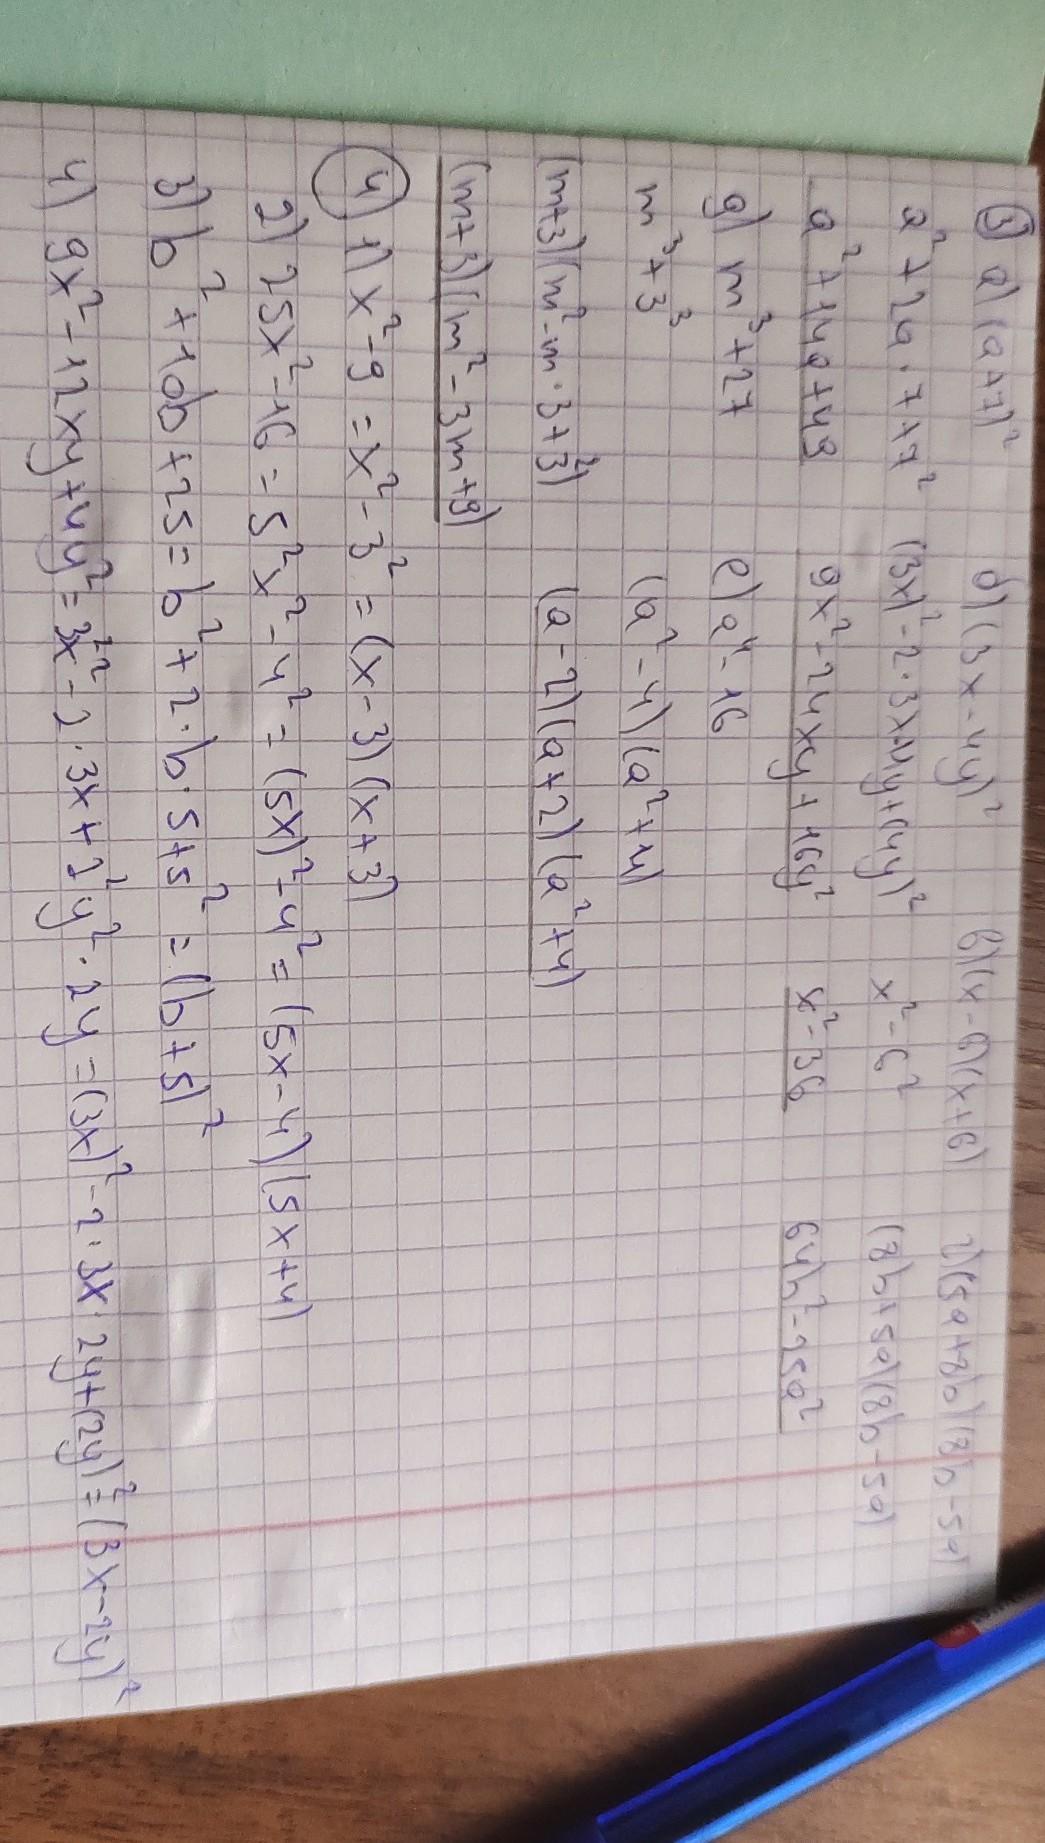 ③ а) (a+7)² б) (3x-4y)² в) (x-6)(x+6) г) (5a+8b)(8b-5a)
a²+2a·7+7² (3x)²-2·3x·4y+(4y)² x²-6² (8b+5a)(8b-5a)
a²+14a+49 9x²-24xy+16y² x²-36 64b²-25a²
д) m³+27 е) a⁴-16
m³+3³ (a²-4)(a²+4)
(m+3)(m²-m·3+3²) (a-2)(a+2)(a²+4)
(m+3)(m²-3m+9)
④ 1) x²-9=x²-3²=(x-3)(x+3)
2) 25x²-16=5²x²-4²=(5x)²-4²=(5x-4)(5x+4)
3) b²+10b+25=b²+2·b·5+5²=(b+5)²
4) 9x²-12xy+4y²=3²x²-2·3x+2²y²·2y=(3x)²-2·3x·2y+(2y)²=(3x-2y)²